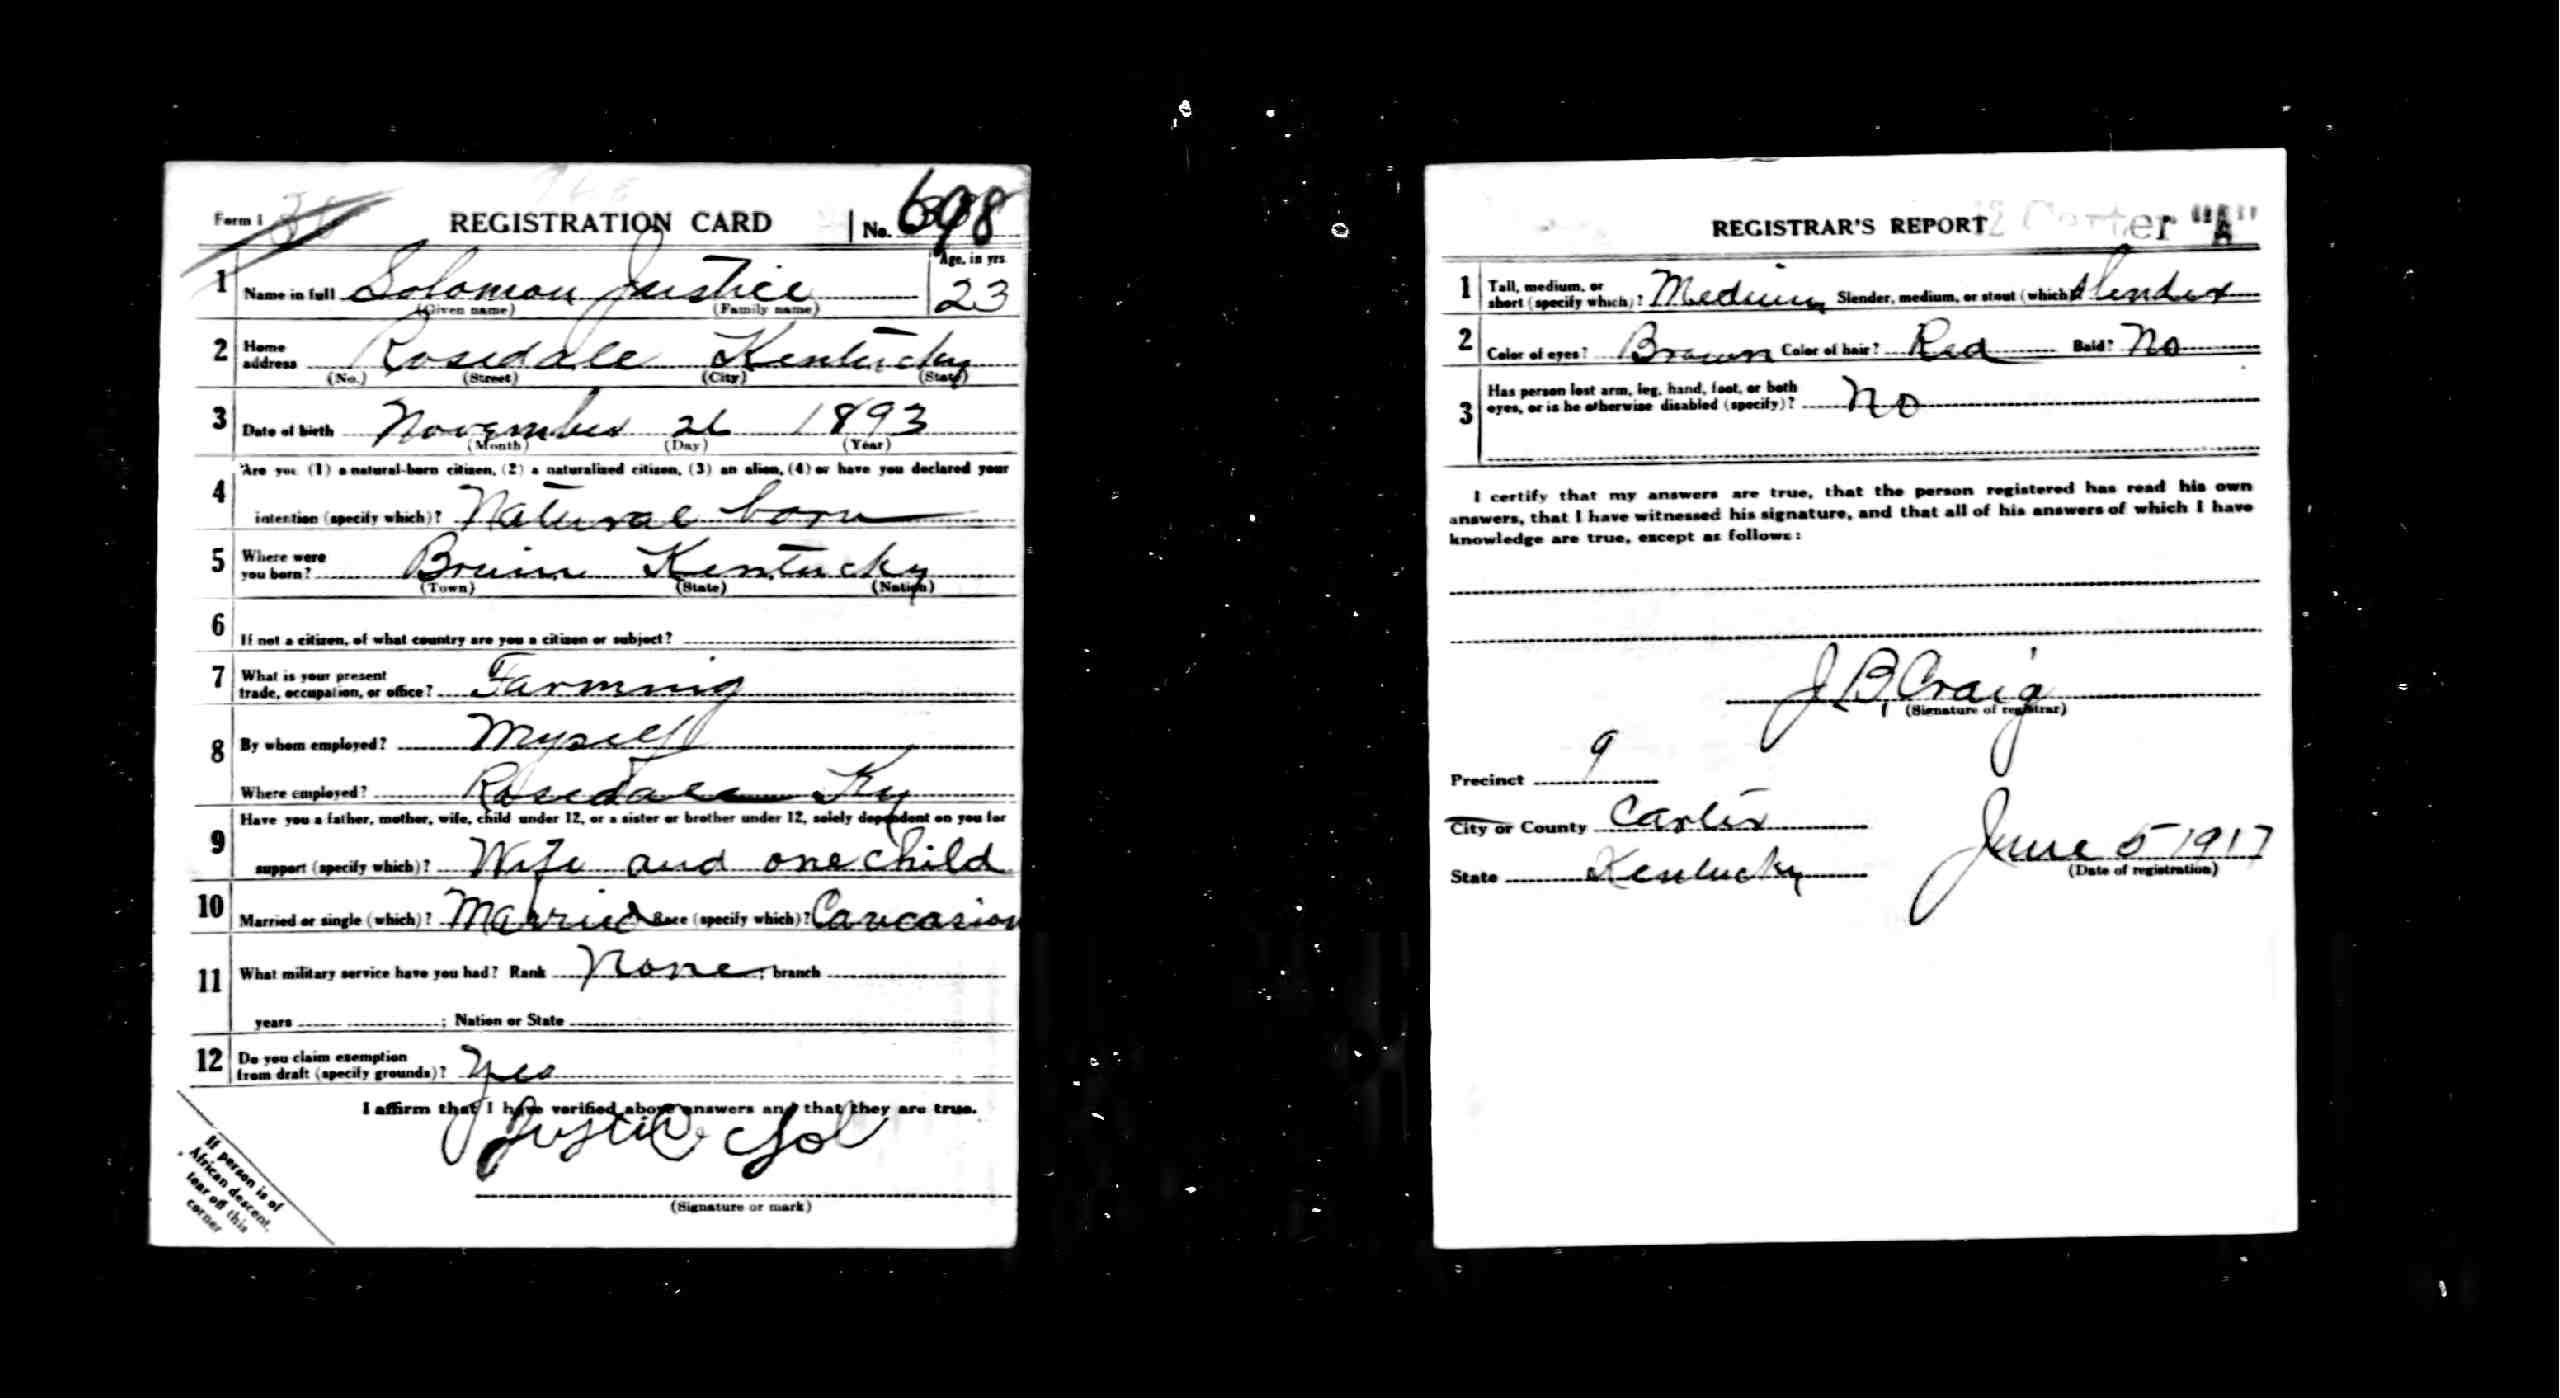 Form 1 REGISTRATION CARD No. 698
1 Name in full Solomon Justice Age, in yrs. 23
(Given name) (Family name)
2 Home address Rosedale Kentucky
(No.) (Street) (City) (State)
3 Date of birth November 26 1893
(Month) (Day) (Year)
4 Are you (1) a natural-born citizen, (2) a naturalized citizen, (3) an alien, (4) or have you declared your
intention (specify which)? Natural born
5 Where were you born? Bruin Kentucky
(Town) (State) (Nation)
6 If not a citizen, of what country are you a citizen or subject?
7 What is your present trade, occupation, or office? Farming
8 By whom employed? Myself
Where employed? Rosedale Ky
9 Have you a father, mother, wife, child under 12, or a sister or brother under 12, solely dependent on you for
support (specify which)? Wife and one child
10 Married or single (which)? Married Race (specify which)? Caucasion
11 What military service have you had? Rank None; branch
years ; Nation or State
12 Do you claim exemption from draft (specify grounds)? Yes
I affirm that I have verified above answers and that they are true.
Justice Sol
(Signature or mark)
If person is of
African descent,
tear off this
corner
REGISTRAR'S REPORT Carter "A"
1 Tall, medium, or short (specify which)? Medium Slender, medium, or stout (which)? Slender
2 Color of eyes? Brown Color of hair? Red Bald? No
3 Has person lost arm, leg, hand, foot, or both
eyes, or is he otherwise disabled (specify)? No
I certify that my answers are true, that the person registered has read his own
answers, that I have witnessed his signature, and that all of his answers of which I have
knowledge are true, except as follows:
J. B. Craig
(Signature of registrar)
Precinct 9
City or County Carter
State Kentucky
June 5 1917
(Date of registration)